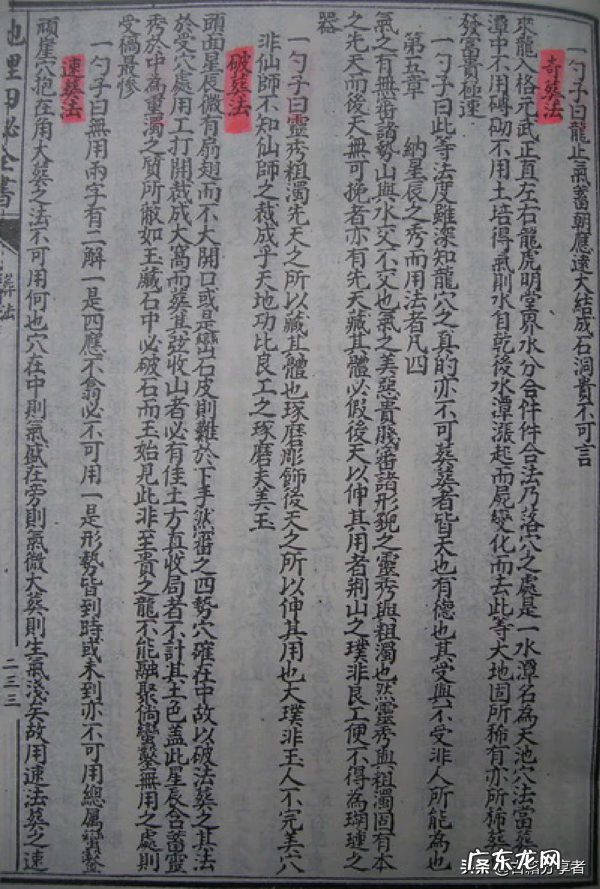 一勺子曰龍止氣蓄朝應遠大結成石洞貴不可言
奇葬法
來龍入格元武正直左右龍虎明堂界水分合件件合法乃落穴之處是一水潭名為天池穴法當葬
潭中不用磚砌不用土培得氣則水自乾後水潭漲起而屍變化而去此等大地固所稀有亦所稀葬
發富貴極速
一勺子曰此等法度雖深知龍穴之真的亦不可葬葬者皆天也有德也其受與不受非人所能為也
第五章 納星辰之秀而用法者凡四
氣之有無審諸勢山與水交不交也氣之美惡貴賤審諸形貌之靈秀與粗濁也然靈秀與粗濁固有本
之先天而後天無可挽者亦有先天藏其體必假後天以伸其用者荆山之璞非良工便不得為瑚璉之
器
一勺子曰靈秀粗濁先天之所以藏其體也琢磨彫飾後天之所以伸其用也大璞非玉人不完美穴
非仙師不知仙師之裁成乎天地功比良工之琢磨夫美玉
破葬法
頭面星辰微有扇翅而不大開口或是巒石皮則難於下手然審之四勢穴確在中故以破法葬之其法
於受穴處用工打開裁成大窩而葬其弦收山者必有佳土方真收局者不計其土色蓋此星辰含蓄靈
秀於中為重濁之質所蔽如玉藏石中必破石而玉始見此非至貴之龍不能融聚倘蠻鑿無用之處則
受禍最慘
一勺子曰無用兩字有二解一是四應不翕必不可用一是形勢皆到時或未到亦不可用總屬蠻鑿
速葬法
頑崖穴抱在角大葬之法不可用何也穴在中則氣盛在旁則氣微大葬則生氣淺矣故用速法葬之速
地理囗必全書
葬法
二三三
头条@古籍分享者
广东龙网